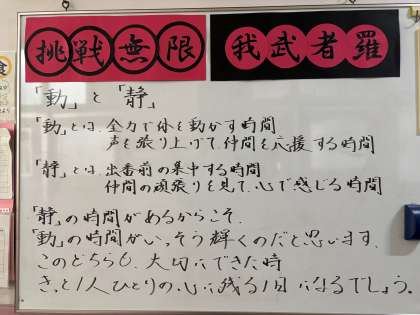 挑戦無限
我武者羅
「動」と「静」
「動」とは、全力で体を動かす時間
声を張り上げて、仲間を応援する時間
「静」とは、出番前の集中する時間
仲間の頑張りを見て、心で感じる時間
「静」の時間があるからこそ、
「動」の時間がいっそう輝くのだと思います。
このどちらも、大切にできた時
きっと1人ひとりの心に残る1日になるでしょう。
食